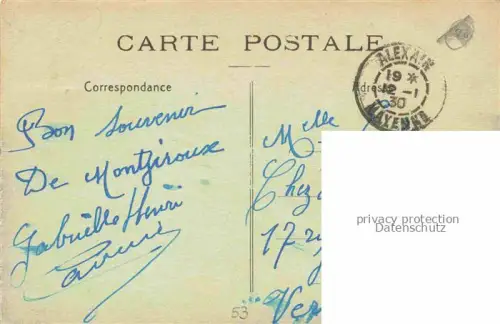 CARTE POSTALE
Correspondance
Adres
ALEXAIN
19 *
12 -1
30
MAYENNE
Bon souvenir
De Montgiroux
Gabrielle Henri
Melle
Chez
17 
Ver
privacy protection
Datenschutz
53